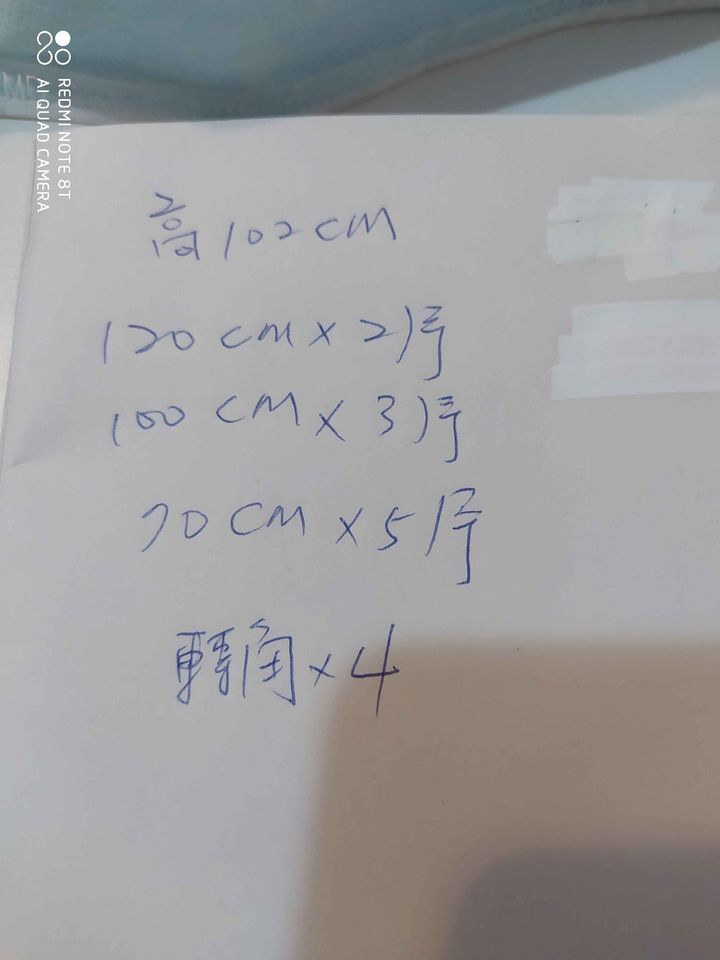 REDMI NOTE 8T
AI QUAD CAMERA
高102CM
120CM×2片
100CM×3片
70CM×5片
轉角×4